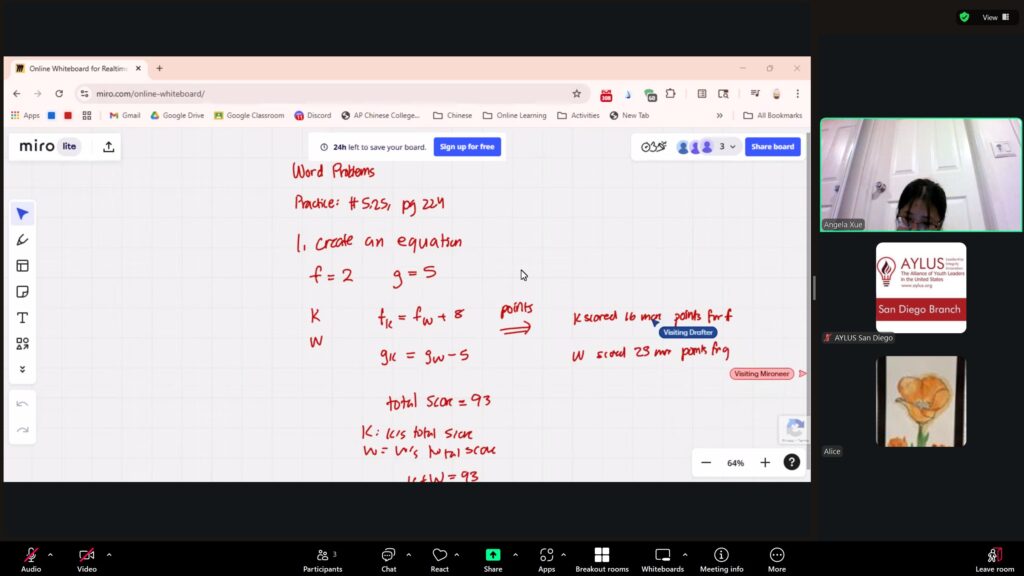 View
Online Whiteboard for Realtim
miro.com/online-whiteboard/
Apps
Gmail
Google Drive
Google Classroom
Discord
AP Chinese College...
Chinese
Online Learning
Activities
New Tab
All Bookmarks
miro lite
24h left to save your board.
Sign up for free
3
Share board
Word Problems
Practice: # 5.25, pg 224
1, create an equation
f = 2 g = 5
K fK = fW + 8 points
W
gK = gW - 5
K scored 16 more points for f
Visiting Drafter
W scored 23 mor points for g
Visiting Mironeer
total score = 93
K: K's total score
W = W's total score
K+W = 93
64%
Angela Xue
AYLUS
The Alliance of Youth Leaders
in the United States
www.aylus.org
San Diego Branch
AYLUS San Diego
Alice
Audio
Video
Participants
3
Chat
React
Share
Apps
Breakout rooms
Whiteboards
Meeting info
More
Leave room